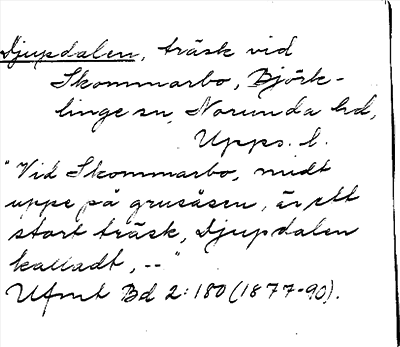 Djupdalen, träsk vid
Skommarbo, Björk-
linge sn, Norunda hd,
Upps. l.
"Vid Skommarbo, midt
uppe på grusåsen, är ett
stort träsk, Djupdalen
kalladt, --"
Ufmt Bd 2:180 (1877-90).